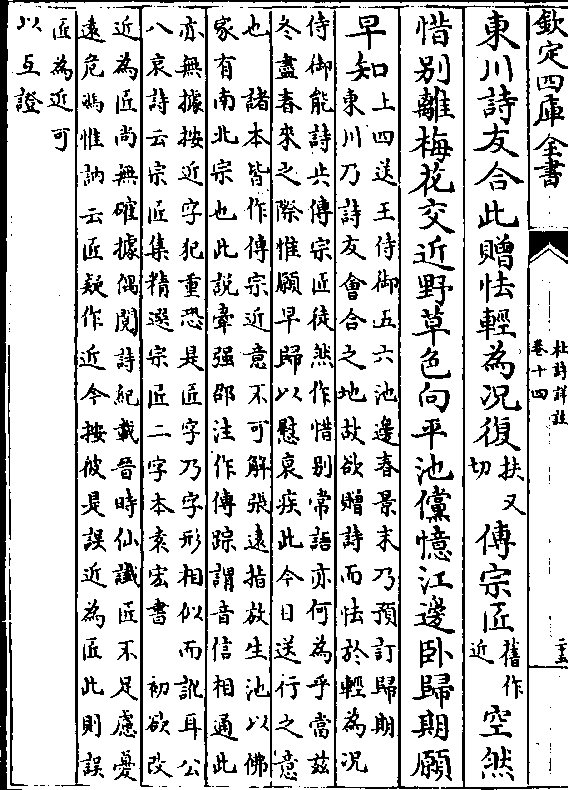 欽定四庫全書
杜詩詳註
卷十四
二五
東川詩友合此贈怯輕為况復扶又切傳宗匠舊作近空然
惜别離梅花交近野草色向平池儻憶江邊卧歸期願
早知
上四送王侍御五六池邊春景末乃預訂歸期
東川乃詩友會合之地故欲贈詩而怯於輕為况
侍御能詩共傳宗匠徒然作惜别常語亦何為乎當兹
冬盡春來之際惟願早歸以慰衰疾此今日送行之意
也 諸本皆作傳宗近意不可解張遠指放生池以佛
家有南北宗也此說牽强邵注作傳踪謂音信相通此
亦無據按近字犯重恐是匠字乃字形相似而訛耳公
八哀詩云宗匠集精選宗匠二字本袁宏書 初欲改
近為匠尚無確據偶閱詩紀載晉時仙讖匠不足慮憂
遠危馮惟訥云匠疑作近今按彼是誤近為匠此則誤
匠為近可
以互證